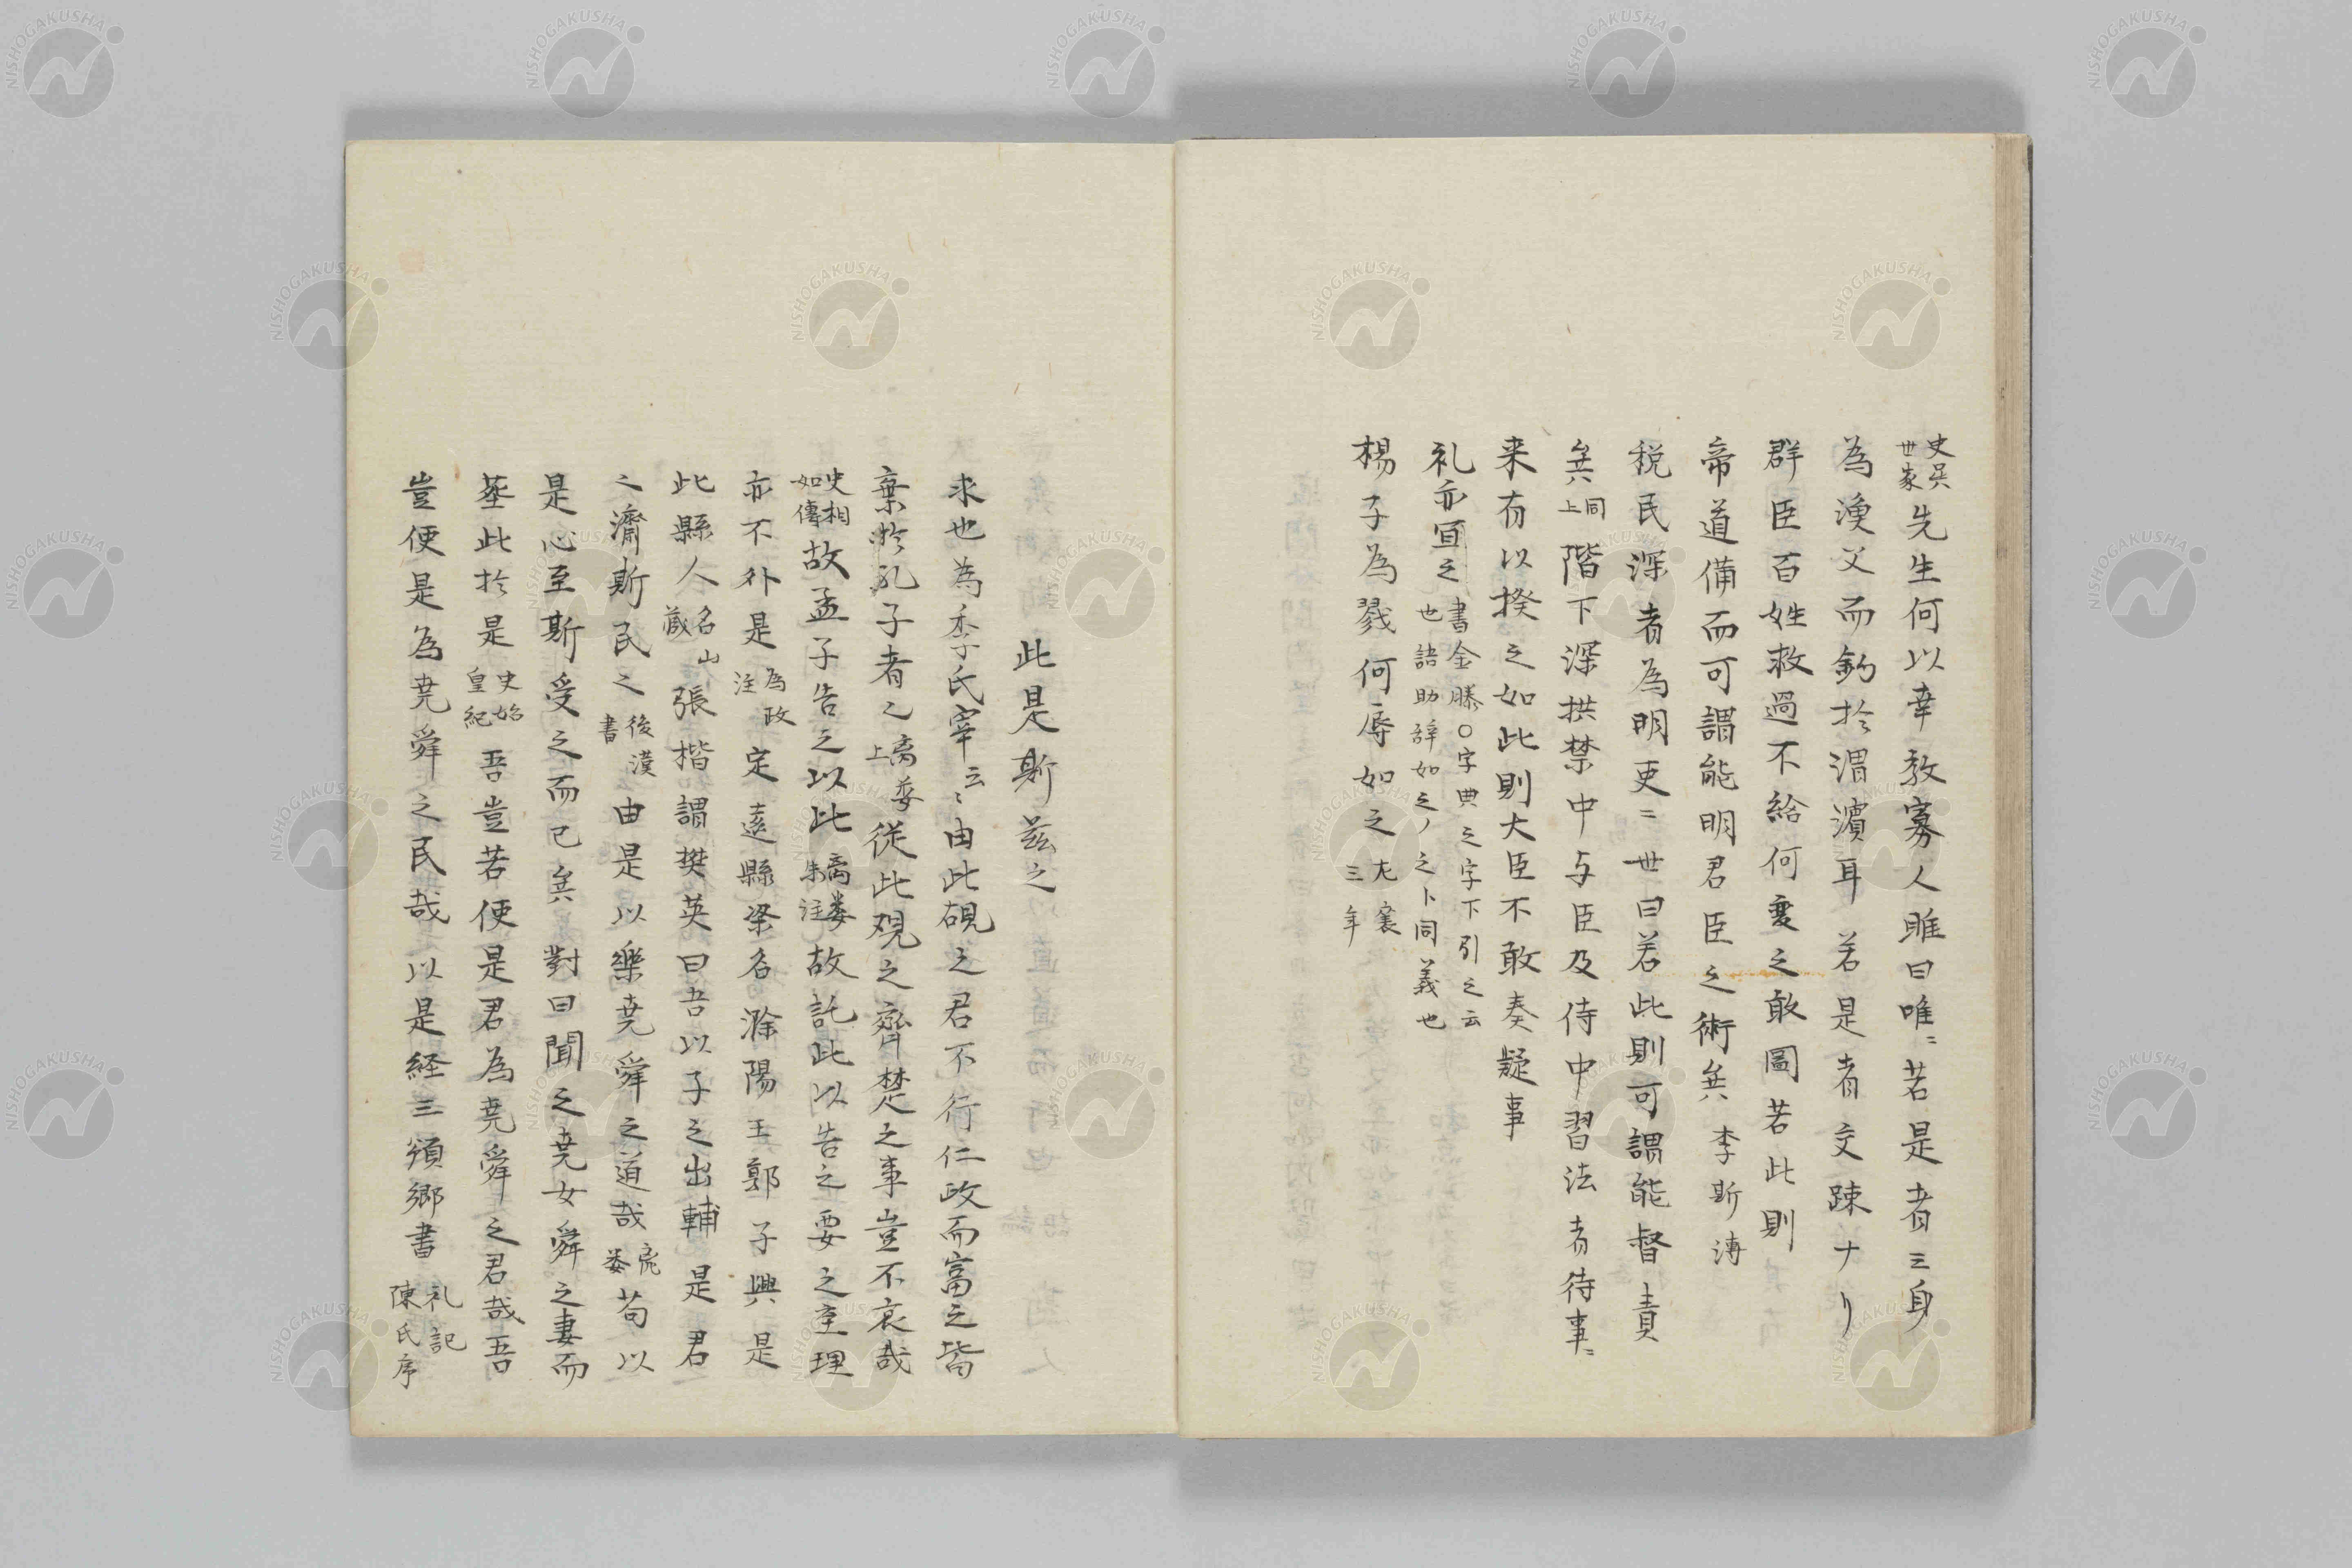 史呉世家先生何以幸教寡人雎曰唯〻若是者三身
為漁父而釣於渭濱耳若是者交踈ナリ
群臣百姓救過不給何変之敢圖若此則
帝道備而可謂能明君臣之術矣李斯傳
税民深者為明吏〻世曰若此則可謂能督責
矣同上階下深拱禁中与臣及侍中習法者待事〻
来有以揆之如此則大臣不敢奏疑事
礼亦宜之書金滕○字典之字下引之云也語助辞如之ノ之ト同義也
楊子為戮何辱如之左襄三年
此是斯茲之
求也為季氏宰云〻由此硯之君不行仁政而富之皆
棄於孔子者之離婁上從此观之齊楚之事豈不哀哉
史相如傳故孟子告之以此离婁朱注故託此以告之要之至理
亦不外是為政注定遠縣梁名滁陽王郭子興是
此縣人名山藏張楷謂樊英曰吾以子之出輔是君
之濟斯民之後漢書由是以樂尭舜之道哉离婁苟以
是心至斯受之而已矣對曰聞之尭女舜之妻而
基此於是史始皇紀吾豈若使是君為尭舜之君哉吾
豈使是為尭舜之民哉以是経三領郷書礼記陳氏序
NISHOGAKUSHA